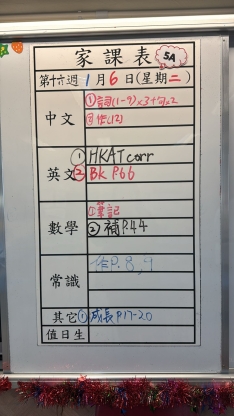 家課表 5A
第十六週 1月6日(星期二)
中文
①詞(1-9)x3+句x2
②作(12)
英文
①HKAT corr
②BK P.66
數學
①筆記
②補P.44
常識
作P.8,9
其它
①成長P.17-20
值日生